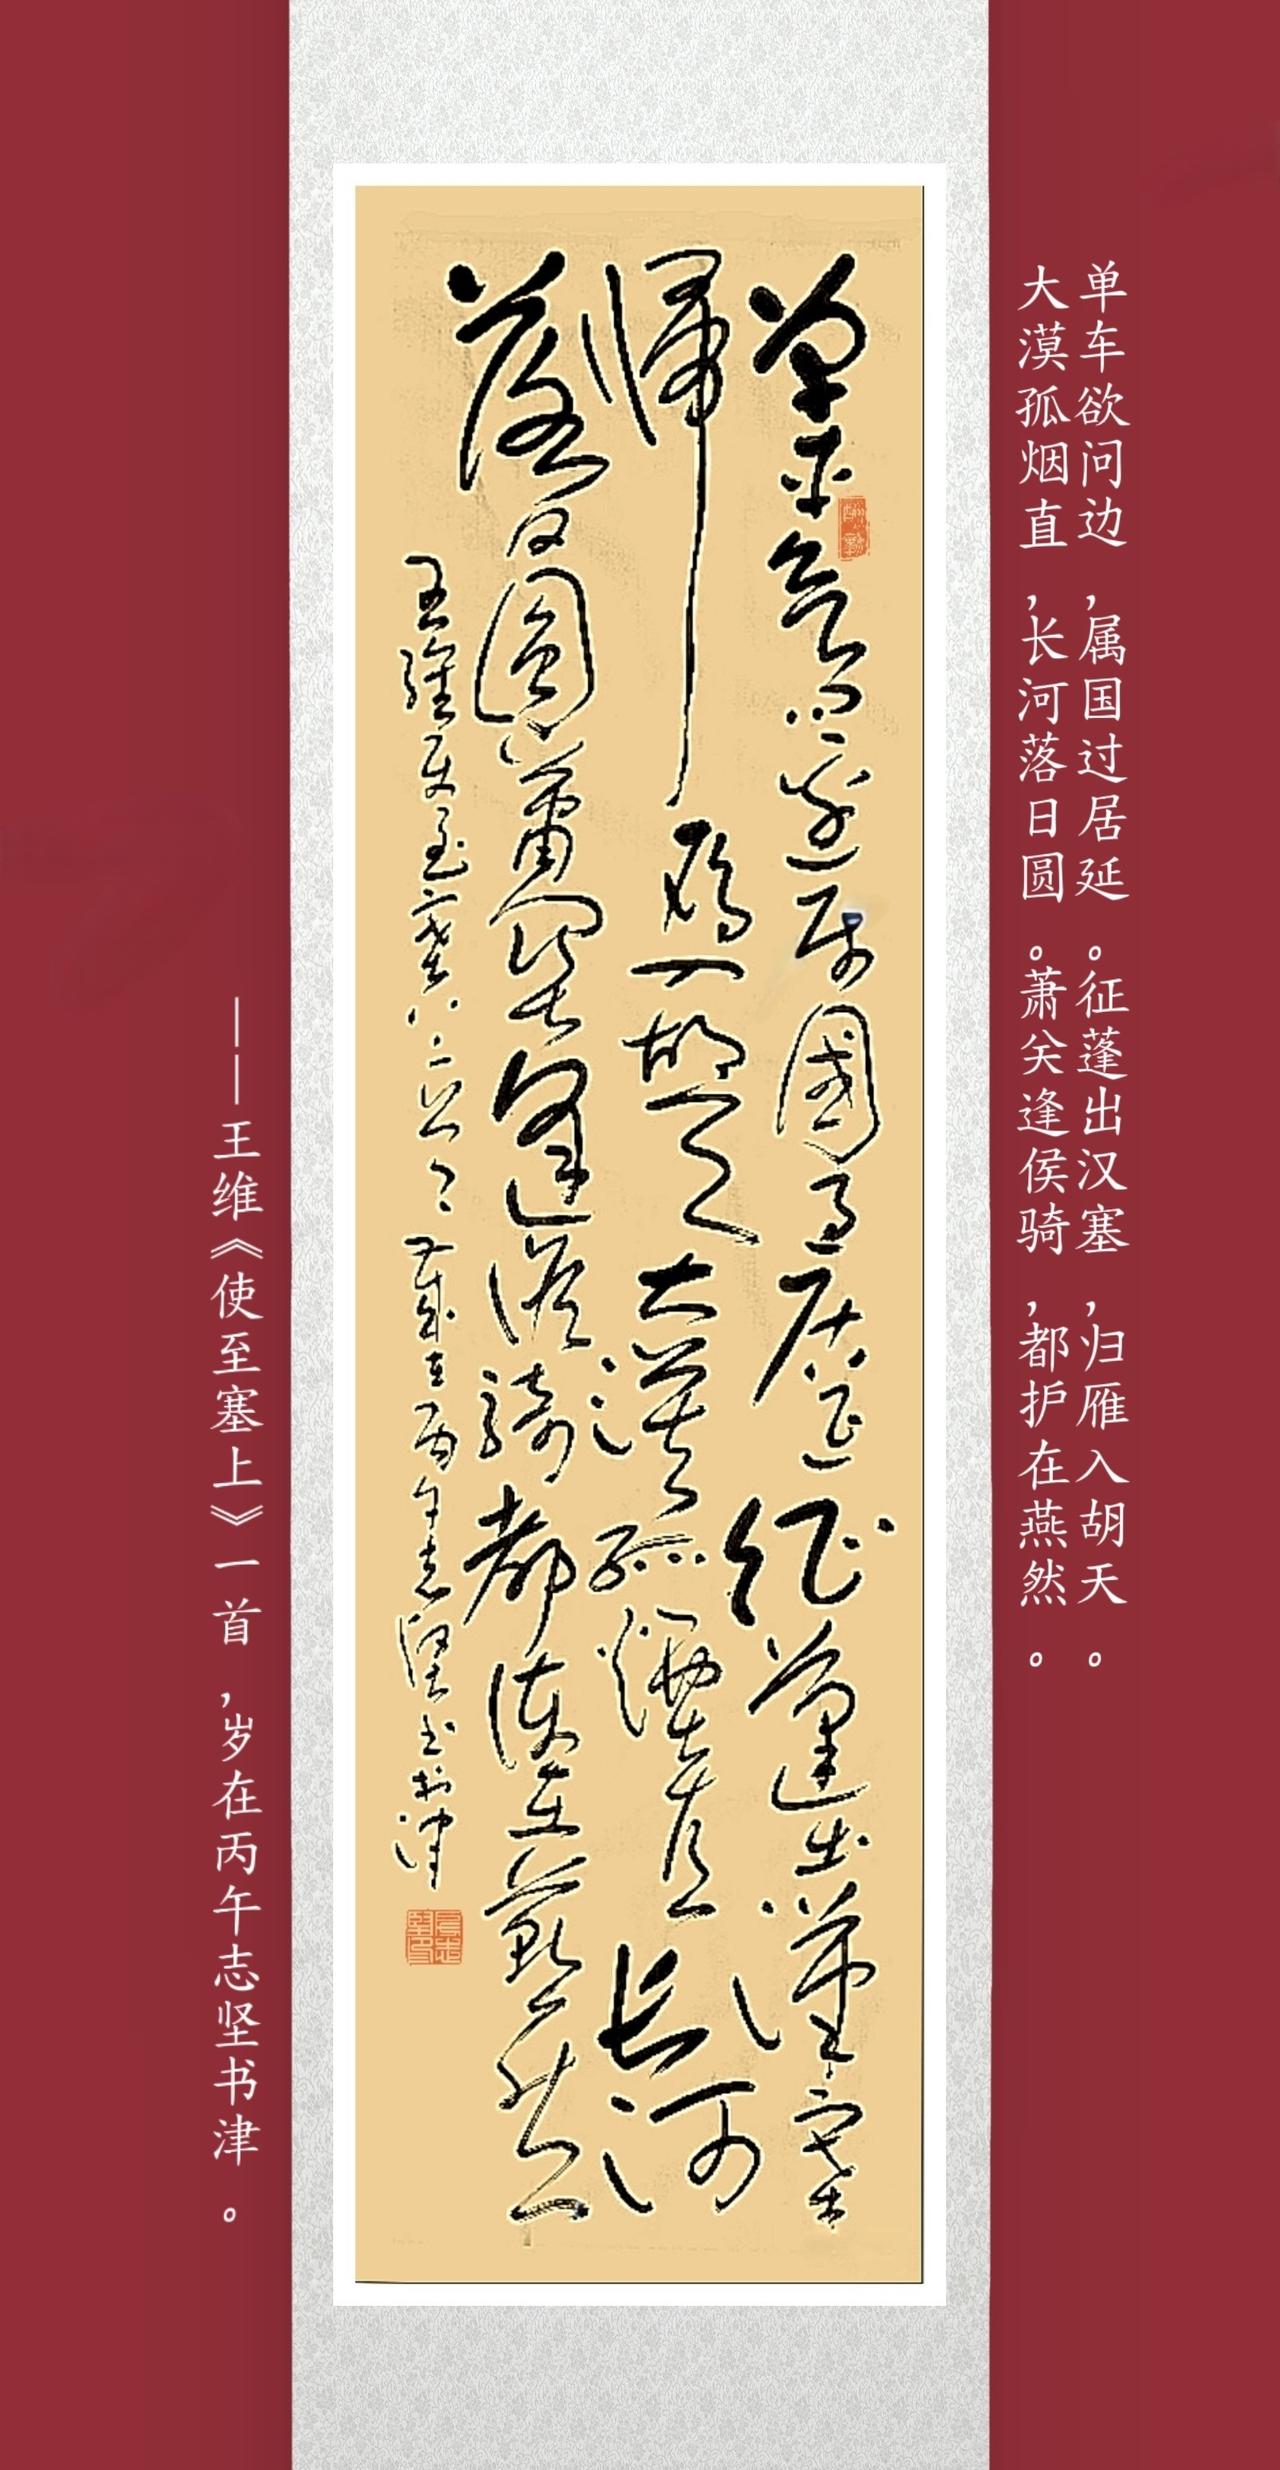 单车欲问边,属国过居延。征蓬出汉塞,归雁入胡天。
大漠孤烟直,长河落日圆。萧关逢侯骑,都护在燕然。
單車欲問邊屬國過居延征蓬出漢塞
歸雁入胡天大漠孤煙直長河
落日圓蕭關逢候騎都護在燕然
王維使至塞上一首歲在丙午志堅书於津
——王维《使至塞上》一首,岁在丙午志坚书津。